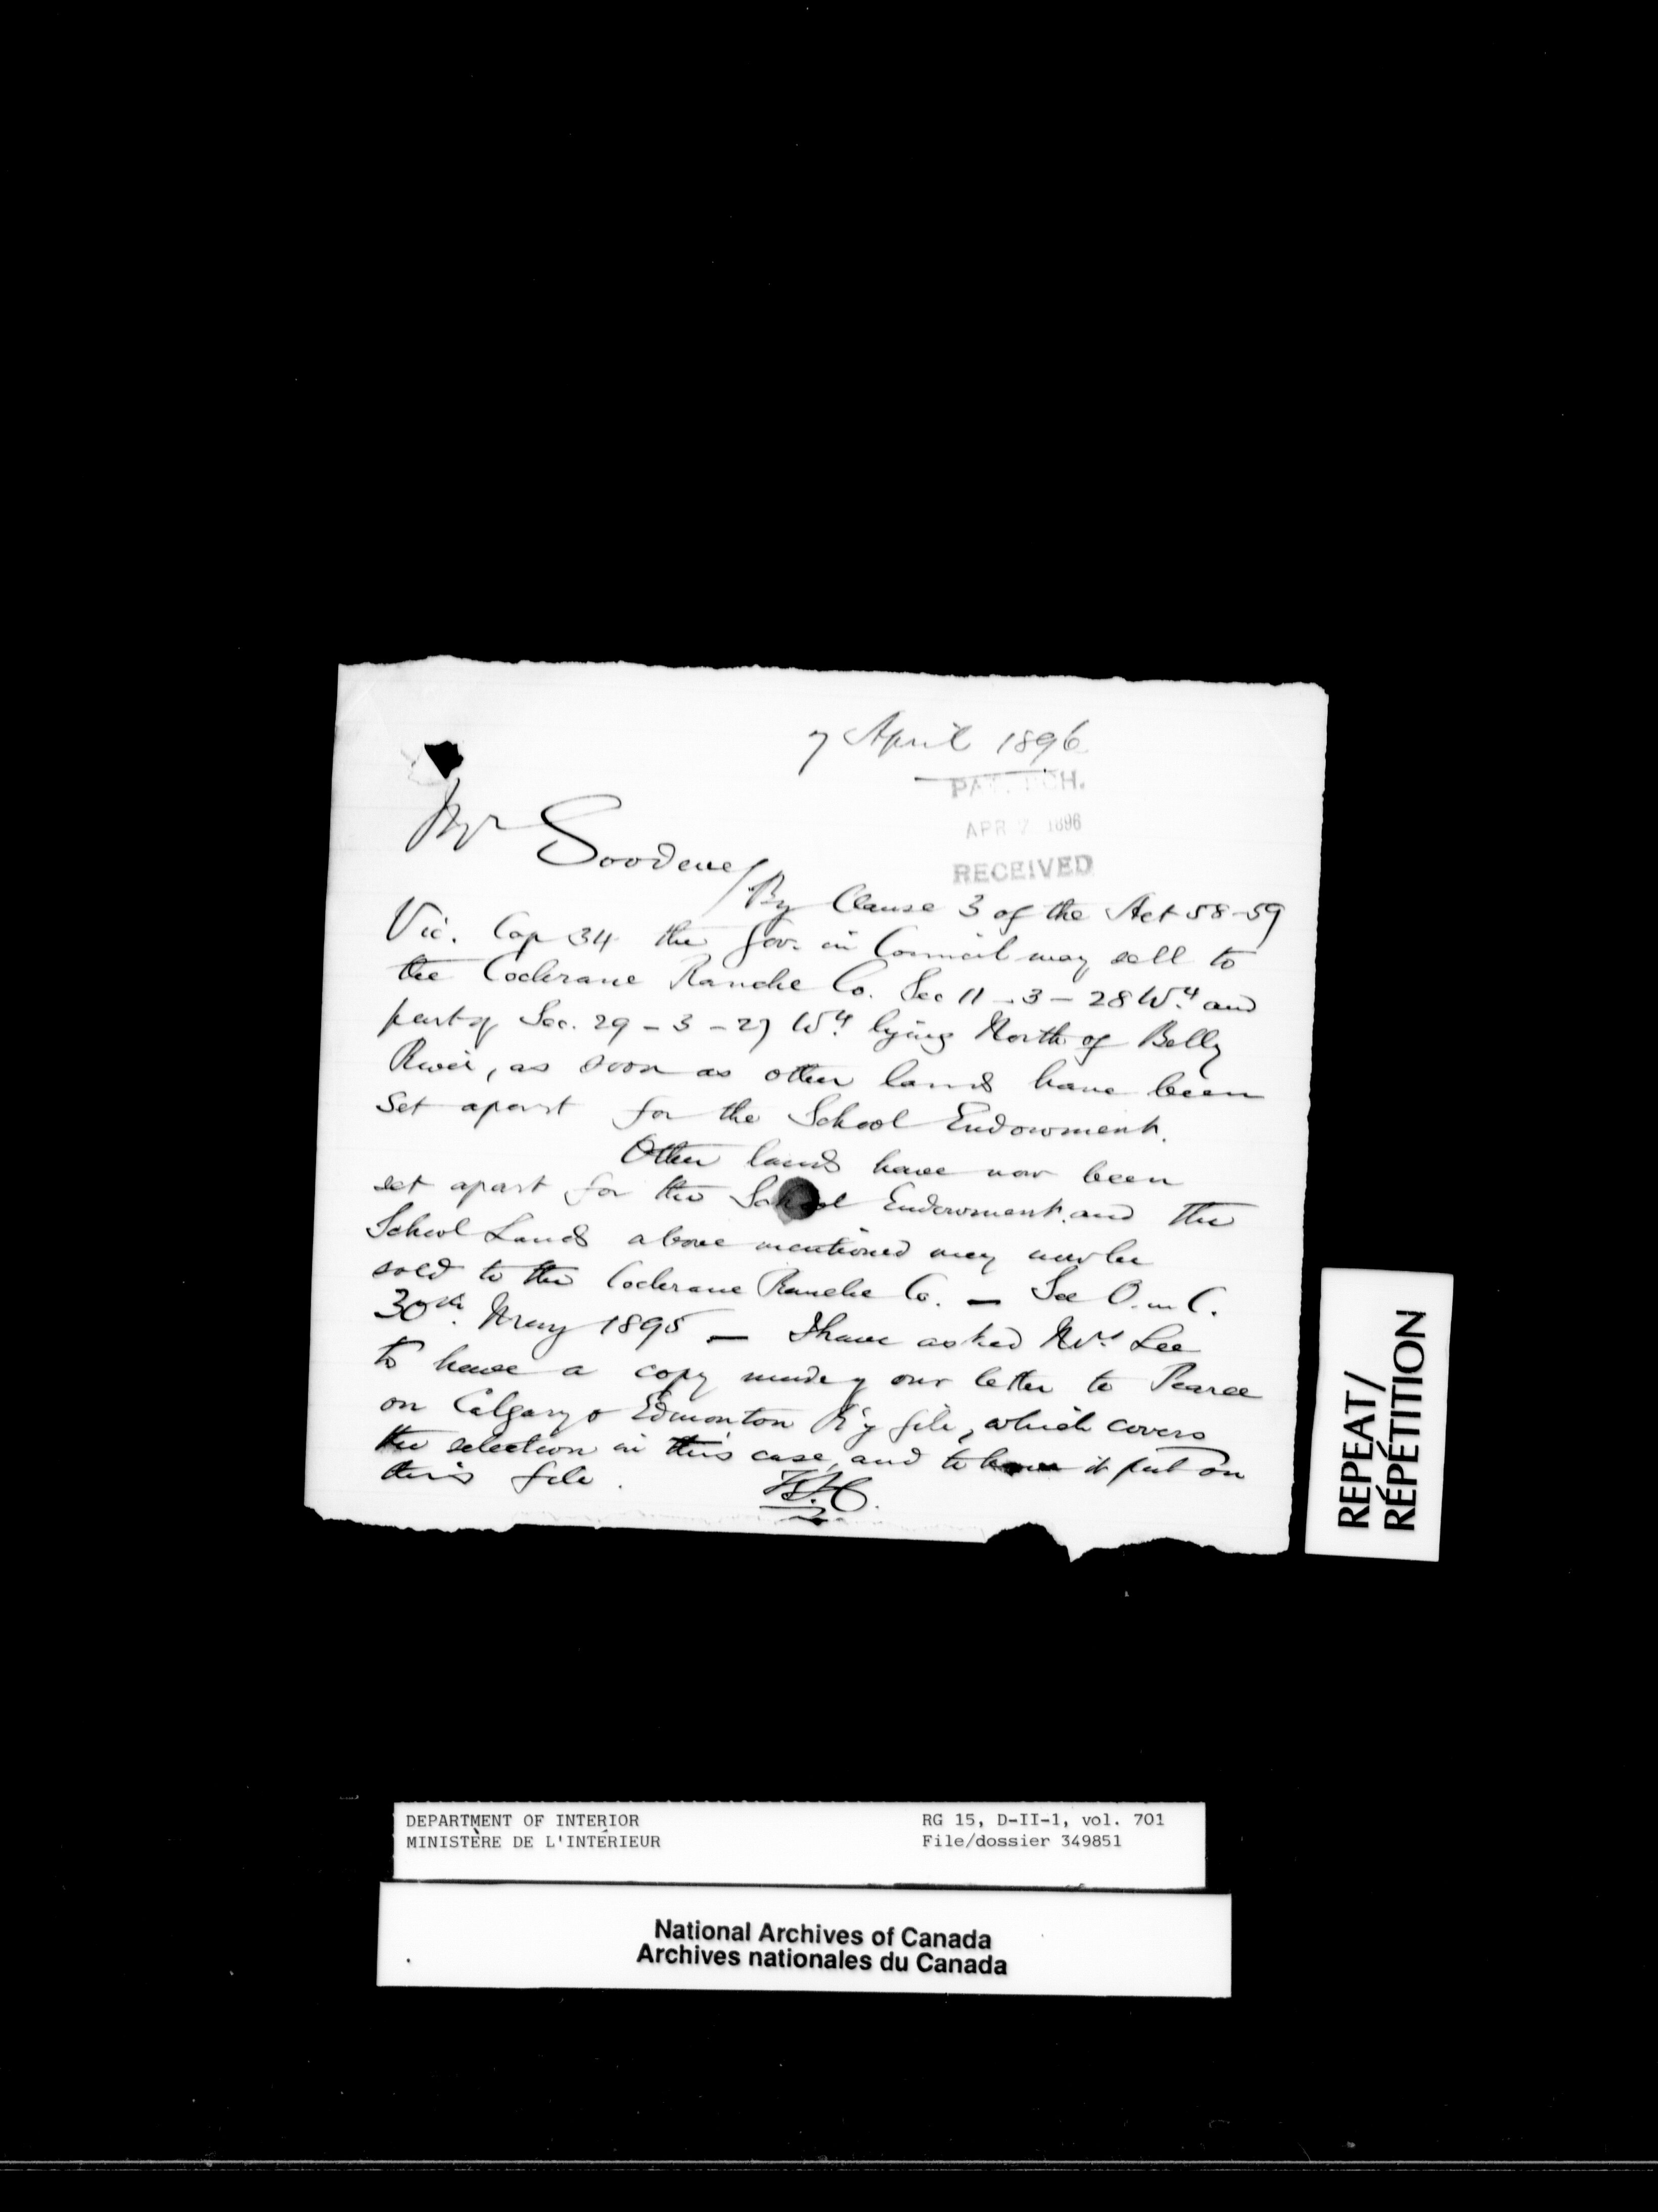 7 April 1896
PAT. BCH.
APR 7 1896
RECEIVED
Mr Goodeve
By Clause 3 of the Act 58-59
Vic. Cap 34 the Gov. in Council may sell to
the Cochrane Ranche Co. Sec 11 - 3 - 28 W.4 and
part of Sec. 29 - 3 - 27 W.4 lying North of Belly
River, as soon as other lands have been
set apart for the School Endowment.
Other lands have now been
set apart for the School Endowment and the
School Lands above mentioned may now be
sold to the Cochrane Ranche Co. — See O. in C.
30th. May 1895 — I have asked Mr. Lee
to have a copy made of our letter to Pearce
on Calgary & Edmonton R'y file, which covers
the selection in this case, and to have it put on
this file.
REPEAT/
RÉPÉTITION
DEPARTMENT OF INTERIOR
MINISTÈRE DE L'INTÉRIEUR
RG 15, D-II-1, vol. 701
File/dossier 349851
National Archives of Canada
Archives nationales du Canada